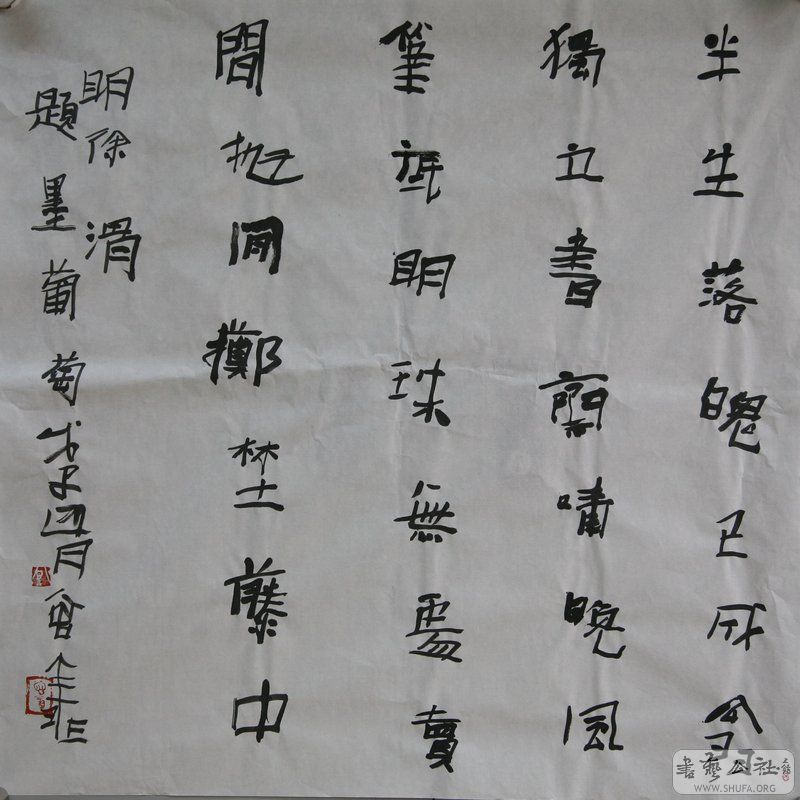 半生落魄已成翁
獨立書齋嘯晚風
筆底明珠無處賣
間抛間擲埜藤中
明徐渭
題墨葡萄
書藝公社
WWW.SHUFA.ORG